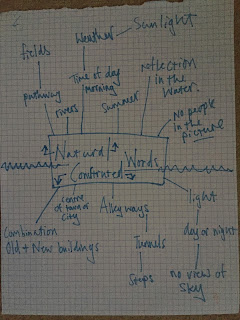 Weather
Sunlight
fields
Time of day
morning
reflection
in the
water.
pathway
rivers
Summer
No people
in the
picture
Natural
Words
centre
of town or
City
Alleyways
light
Combination
Old + New buildings
Tunnels
day or night
Steps
no view of
sky